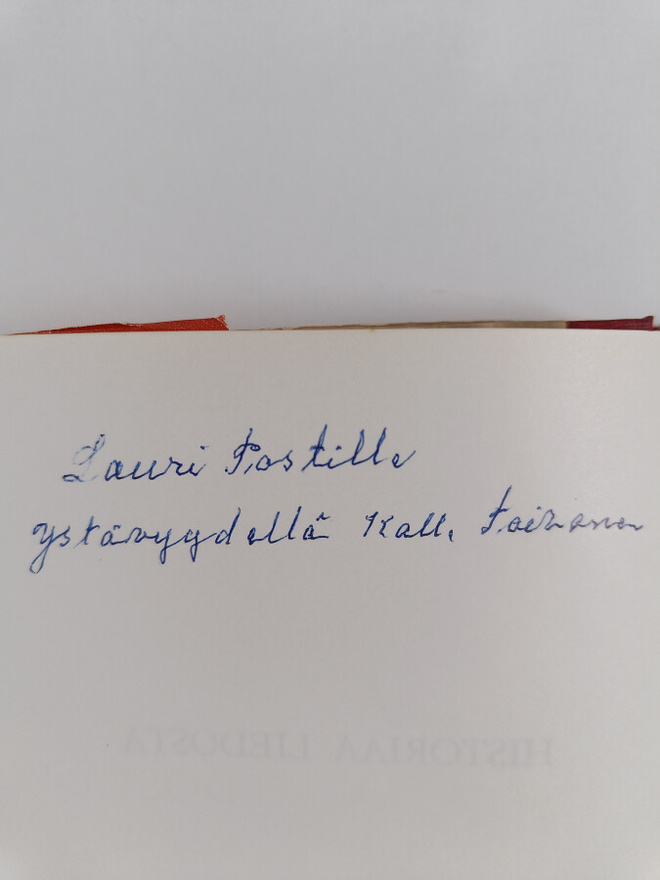 Lauri Postille
Ystävyydellä Kalle Toivonen
HISTORIAA LIEDOSTA